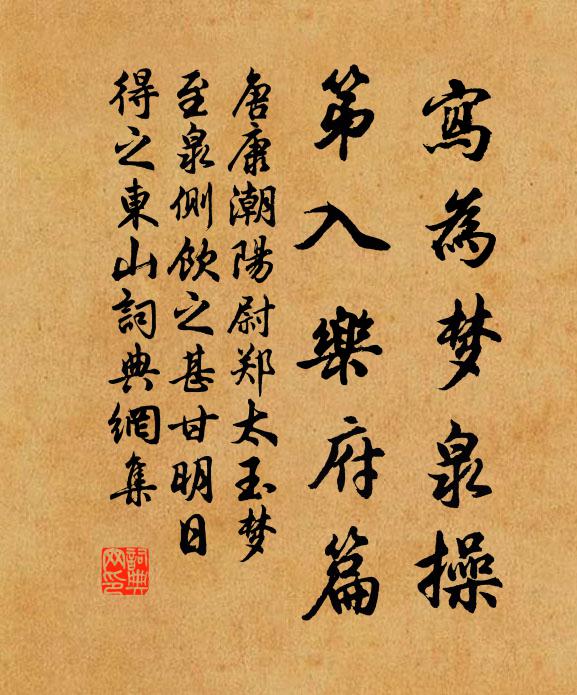 寫為梦泉操
第入樂府篇
唐庚潮陽尉郑太玉梦
至泉側飲之甚甘明日
得之東山詞典網集
詞典网印